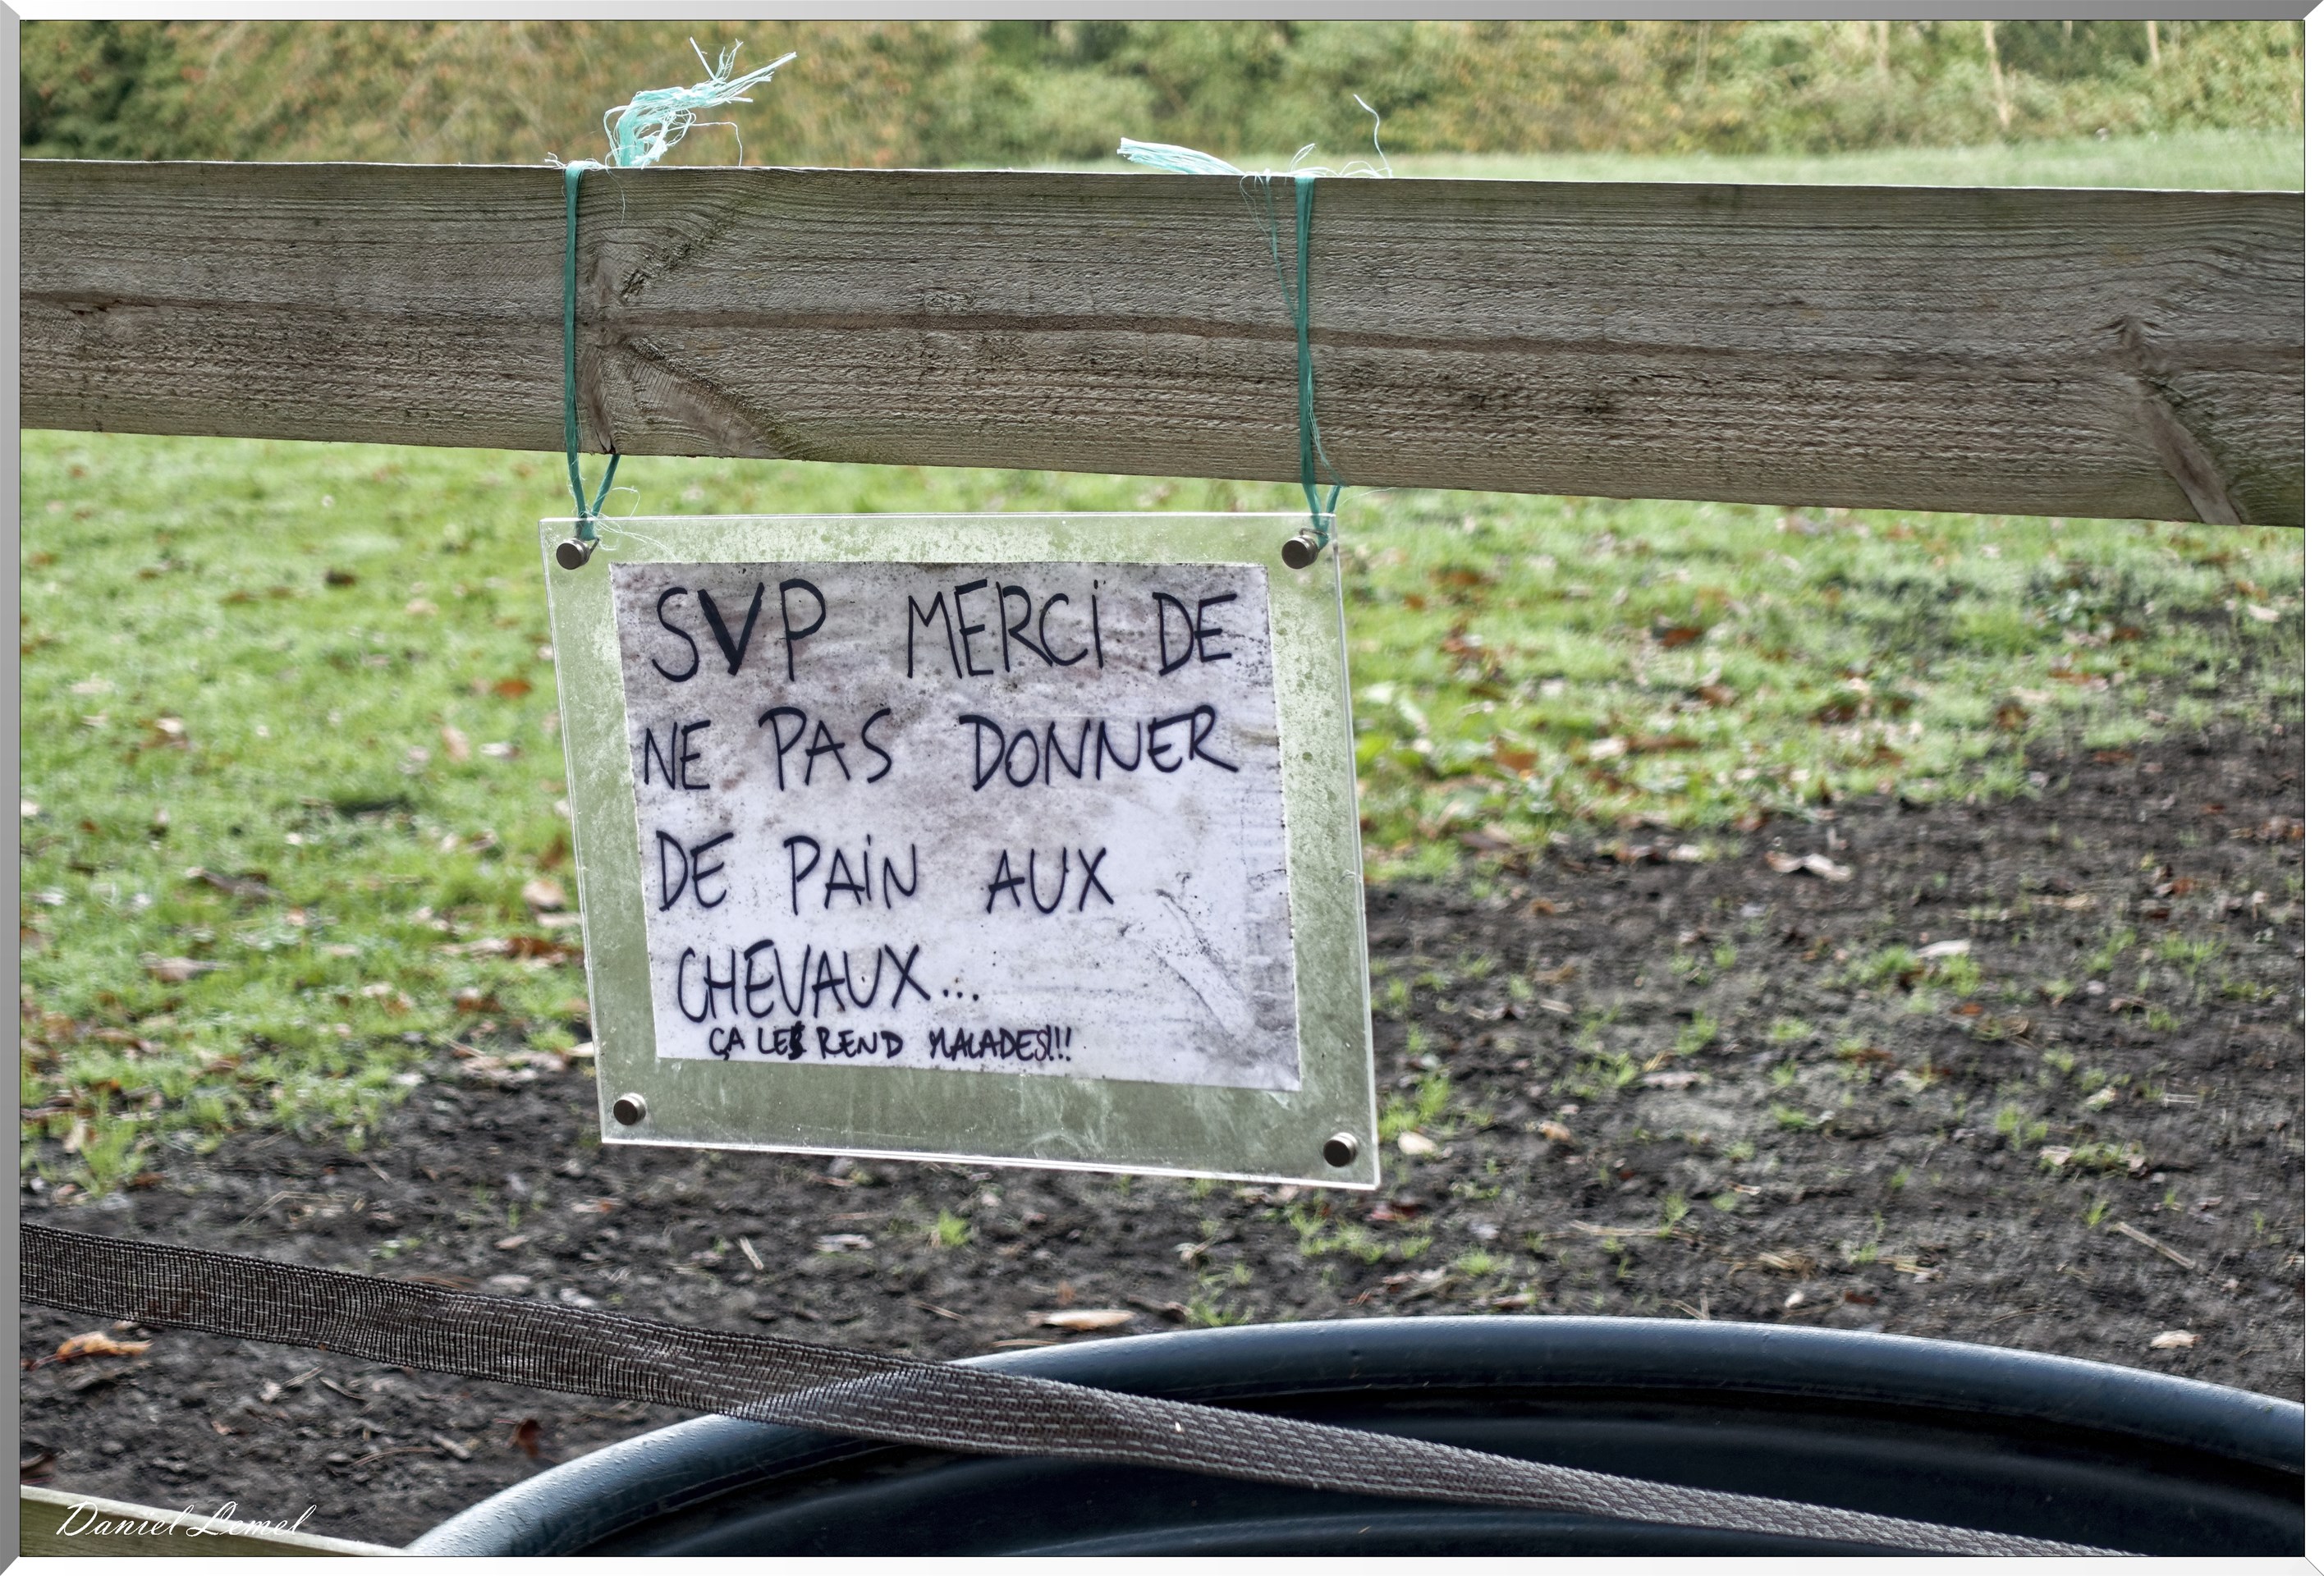 SVP MERCI DE
NE PAS DONNER
DE PAIN AUX
CHEVAUX...
ÇA LES REND MALADES!!!
Daniel Lemel